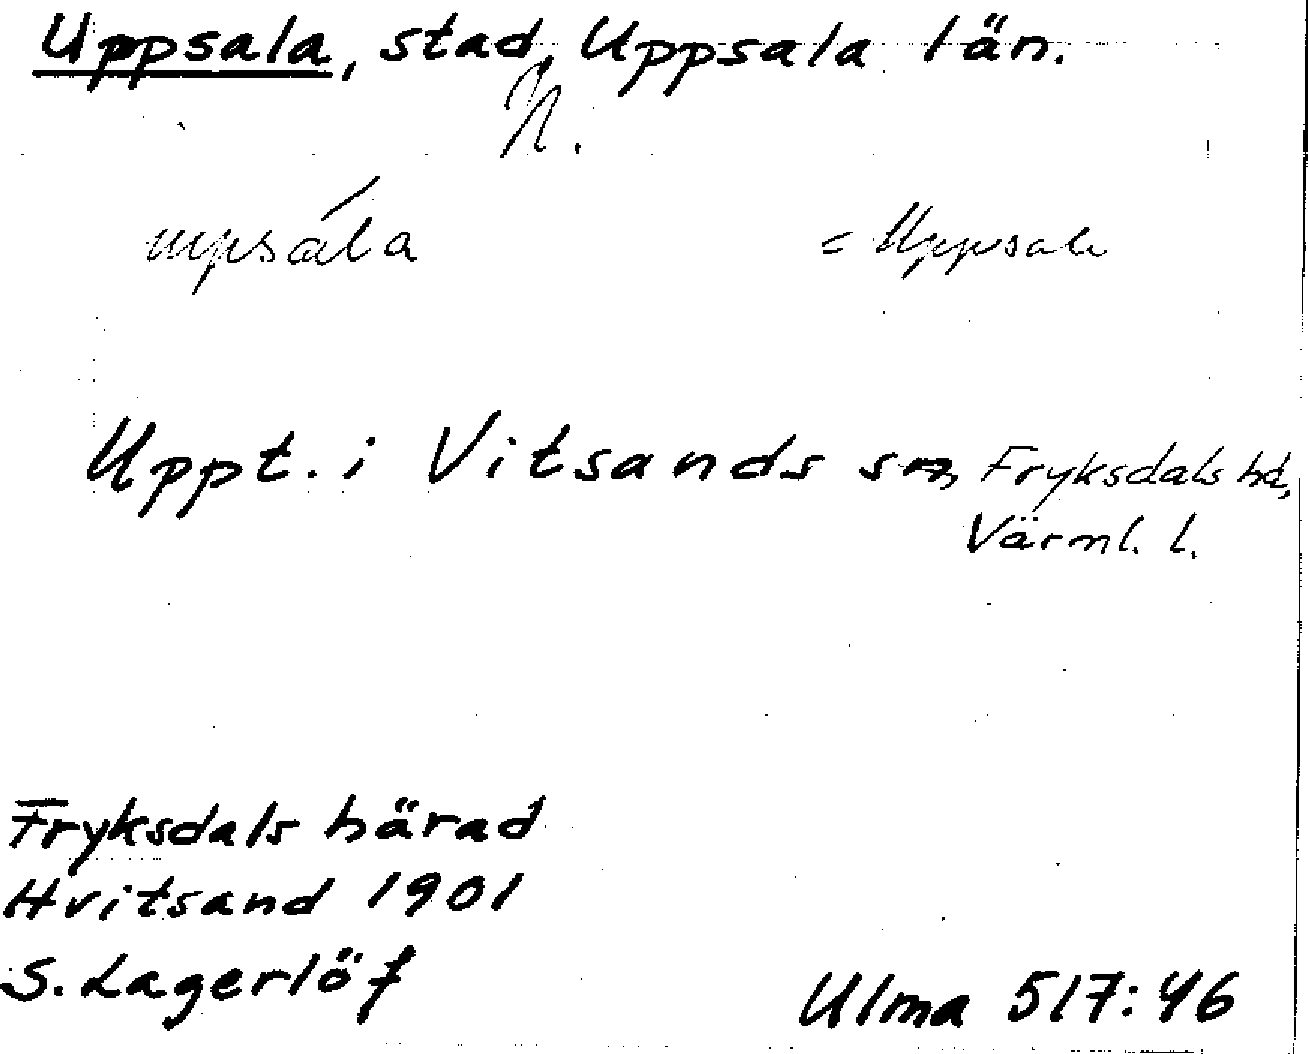 Uppsala, stad, Uppsala län.
N.
upsála = Uppsala
Uppt. i Vitsands sn, Fryksdals hd,
Värml. l.
Fryksdals härad
Hvitsand 1901
S. Lagerlöf
Ulma 517:46